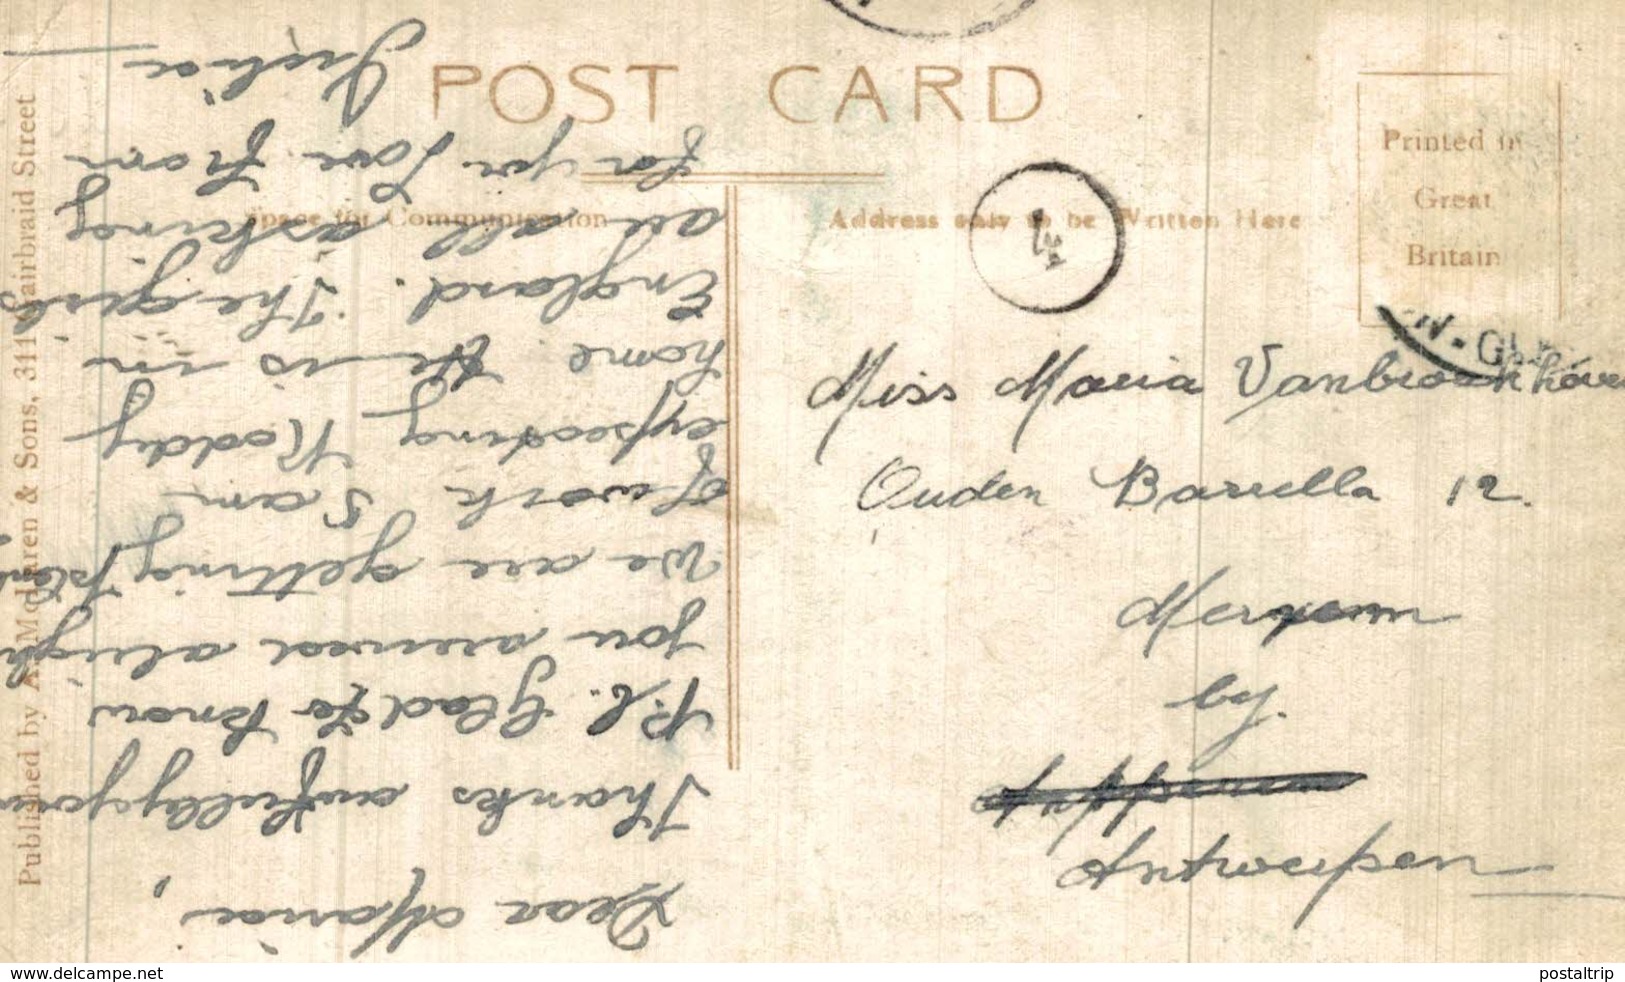 POST CARD
Space for Communication
Address only to be Written Here
Printed in
Great
Britain
Published by A. McLaren & Sons, 311 Fairbraid Street
Dear Maria,
Thanks awfully your
P.C. Glad to know
you arrived alright
We are getting plenty
of work I am
expecting Roddy
home He is in
England. The girls
are all asking
for you Love from
Miss Maria
Ouden Barella 12.
Merxem
by.
Antwerpen
www.delcampe.net
postaltrip